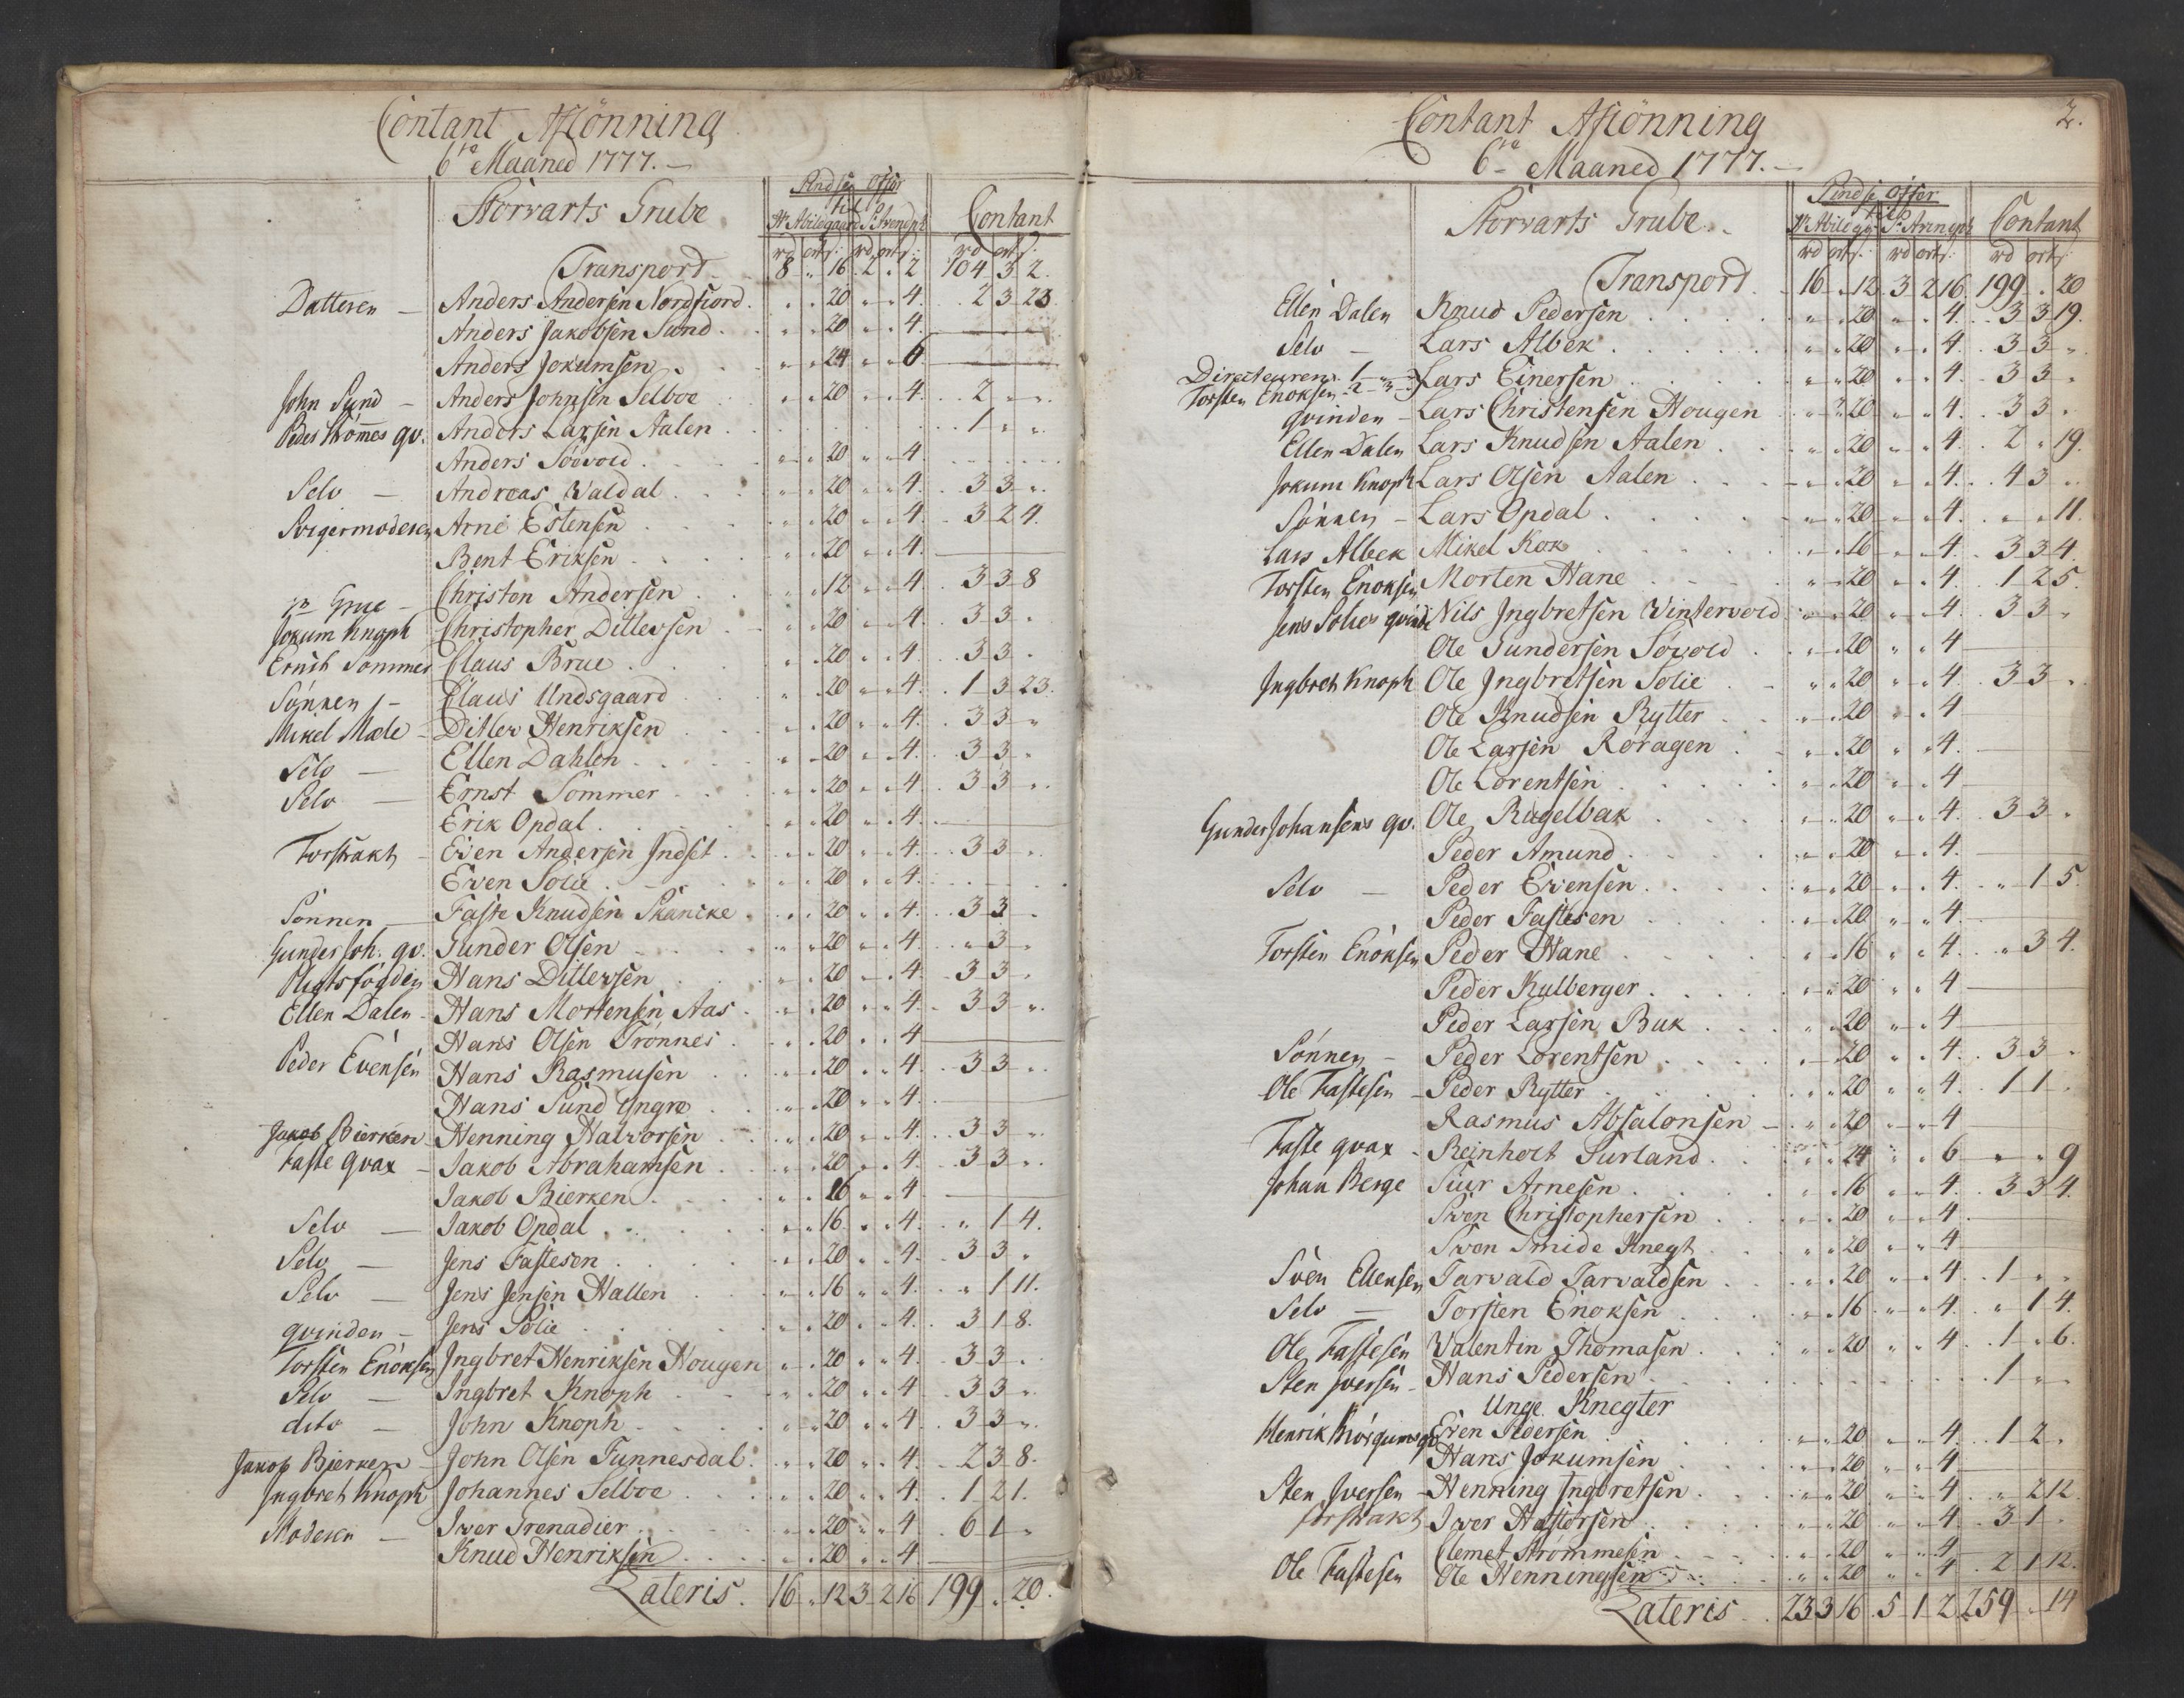 Contant Aflönning
6te Maaned 1777.
Storvarts Grube
Pindse Offer
til
Hr Abildgaard Sr Svendph
Contant
rd ort s: rd ort s: rd ort s:
Transport 8 „ 16 2 „ 2 104 3 2.
Datteren — Anders Andersen Nordfiord „ „ 20 „ „ 4. 2 3 23
Anders Jakobsen Sund „ „ 20 „ „ 4. —
Anders Jokumsen „ „ 24 „ „ 6 —
John Sund — Anders Johnsen Selboe „ „ 20 „ „ 4. 2 „ „
Peder Trömes qv. Anders Larsen Aalen 1 „ „
Anders Söevold „ „ 20 „ „ 4
Selv — Andreas Valdal „ „ 20 „ „ 4. 3 3 „
Svigermoderen Arne Estensen „ „ 20 „ „ 4. 3 2 4.
Bent Eriksen „ „ 20 „ „ 4. —
Grue — Christen Andersen „ „ 12 „ „ 4 3 3 8
Jokum Knoph Christopher Ditlevsen „ „ 20 „ „ 4. 3 3 „
Ernst Sommer Claus Brue „ „ 20 „ „ 4. 3 3 „
Sönnen — Claus Undsgaard „ „ 20 „ „ 4. 1 3 23.
Mikel Mæle — Ditlev Henriksen „ „ 20 „ „ 4. 3 3 „
Selv — Ellen Dahlen „ „ 20 „ „ 4. 3 3 „
Selv — Ernst Sommer „ „ 20 „ „ 4. 3 3 „
Erik Opdal „ „ 20 „ „ 4. —
Forstrakt — Even Andersen Indset „ „ 20 „ „ 4. 3 3 „
Even Solie „ „ 20 „ „ 4.
Sönnen — Faste Knudsen Skancke „ „ 20 „ „ 4. 3 3 „
Gunder Joh: qv. Gunder Olsen „ „ 20 „ „ 4. „ 3 „
Pligtsfogden Hans Ditlevsen „ „ 20 „ „ 4. 3 3 „
Ellen Dalen — Hans Mortensen Aas „ „ 20 „ „ 4. 3 3 „
Hans Olsen Trönnes „ „ 20 „ „ 4 —
Peder Evensen Hans Rasmusen „ „ 20 „ „ 4. 3 3 „
Hans Sund Yngre „ „ 20 „ „ 4 —
Jakob Bierken Henning Halvorsen „ „ 20 „ „ 4. 3 3 „
Faste Qvax — Jakob Abrahamsen „ „ 20 „ „ 4. 3 3 „
Jakob Bierken „ „ 16 „ „ 4 —
Selv — Jakob Opdal „ „ 16 „ „ 4. „ 1 4.
Selv — Jens Fastesen „ „ 20 „ „ 4. 3 3 „
Selv — Jens Jensen Hallen „ „ 16 „ „ 4. „ 1 11.
qvinden — Jens Solie „ „ 20 „ „ 4. 3 1 8.
Torsten Enoksen Ingbret Henriksen Hougen „ „ 20 „ „ 4. 3 3 „
Selv — Ingbret Knoph „ „ 20 „ „ 4 3 3 „
dito — John Knoph „ „ 20 „ „ 4 3 3 „
Jakob Bierken — John Olsen Tunnesdal „ „ 20 „ „ 4. 2 3 8.
Ingbret Knoph Johannes Selboe „ „ 20 „ „ 4. 1 2 1.
Moderen — Iver Grenadier „ „ 20 „ „ 4 6 1 „
Knud Henriksen „ „ 20 „ „ 4 —
Lateris 16 „ 12 3 2 16 199 „ 20.
2.
Contant Aflönning
6te Maaned 1777.
Storvarts Grube
Pindse Offer
til
Contant
rd ort s: rd ort s: rd ort s:
Transport 16 „ 12 3 2 16 199 „ 20
Ellen Dalen Knud Pedersen „ „ 20 „ „ 4. 3 3 19.
Selv — Lars Albek „ „ 20 „ „ 4. 3 3 „
Directeuren 1 „ „
Torsten Enoksen 2 3 „ Lars Einersen „ „ 20 „ „ 4. 3 3 „
qvinden — Lars Christensen Hougen „ „ 20 „ „ 4. 3 3 „
Ellen Dalen Lars Knudsen Aalen „ „ 20 „ „ 4. 2 „ 19.
Jokum Knoph Lars Olsen Aalen „ „ 20 „ „ 4. 4 3 „
Sönnen — Lars Opdal „ „ 20 „ „ 4. „ „ 11.
Lars Albek Mikel Kok „ „ 16 „ „ 4. 3 3 4.
Torsten Enoksen Morten Hane „ „ 20 „ „ 4. 1 2 5.
Jens Solies qvinde Nils Ingbretsen Vintervold „ „ 20 „ „ 4. 3 3 „
Ole Gundersen Sövold „ „ 20 „ „ 4 —
Ingbret Knoph Ole Ingbretsen Solie „ „ 20 „ „ 4 3 3 „
Ole Knudsen Rytter „ „ 20 „ „ 4 —
Ole Larsen Röragen „ „ 20 „ „ 4. —
Ole Lorentsen „ „ 20 „ „ 4 —
Gunder Johansens qv. Ole Rugelbak „ „ 20 „ „ 4. 3 3 „
Peder Amund „ „ 20 „ „ 4. —
Selv — Peder Evensen „ „ 20 „ „ 4. „ 1 5.
Peder Fastesen „ „ 20 „ „ 4. —
Torsten Enoksen Peder Hane „ „ 16 „ „ 4. „ 3 4.
Peder Kulberger „ „ 20 „ „ 4 —
Peder Larsen Buk „ „ 20 „ „ 4 —
Sönnen — Peder Lorentsen „ „ 20 „ „ 4. 3 3 „
Ole Fastesen — Peder Rytter „ „ 20 „ „ 4. 1 1 „
Rasmus Absalonsen „ „ 20 „ „ 4 —
Faste qvax — Reinholt Surland „ „ 24 „ „ 6 „ „ 9
Johan Berge Siur Arnesen „ „ 16 „ „ 4. 3 3 4.
Sven Christophersen „ „ 20 „ „ 4 —
Sven Smide Knegt „ „ 20 „ „ 4 —
Sven Ellensen Tarvald Tarvaldsen „ „ 20 „ „ 4 1 „ „
Selv — Torsten Enoksen „ „ 16 „ „ 4. „ 1 4.
Ole Fastesen Valentin Thomasen „ „ 20 „ „ 4 1 „ 6.
Sten Iversen — Hans Pedersen 1 „ „
Unge Knegter
Henrik Even Pedersen „ „ 20 „ „ 4. 1 2 „
Hans Jokumsen „ „ 20 „ „ 4 —
Sten Iversen — Henning Ingbretsen „ „ 20 „ „ 4 „ 2 12.
forstrakt Iver Hastorsen „ „ 20 „ „ 4. 3 1 „
Clemet Strömmesen „ „ 20 „ „ 4 —
Ole Fastesen Ole Henningsen „ „ 20 „ „ 4 2 1 12.
Lateris 23 3 16 5 1 2 259 „ 14